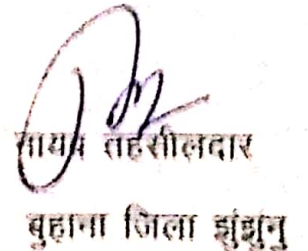 नायब तहसीलदार
बुहाना जिला झुंझुनु